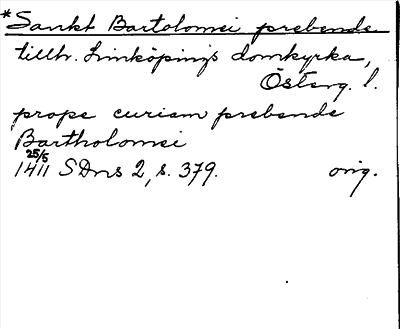 *Sankt Bartolomei prebende
tillh. Linköpings domkyrka,
Österg. l.
prope curiam prebende
Bartholomei
25/5
1411 SDns 2, s. 379. orig.